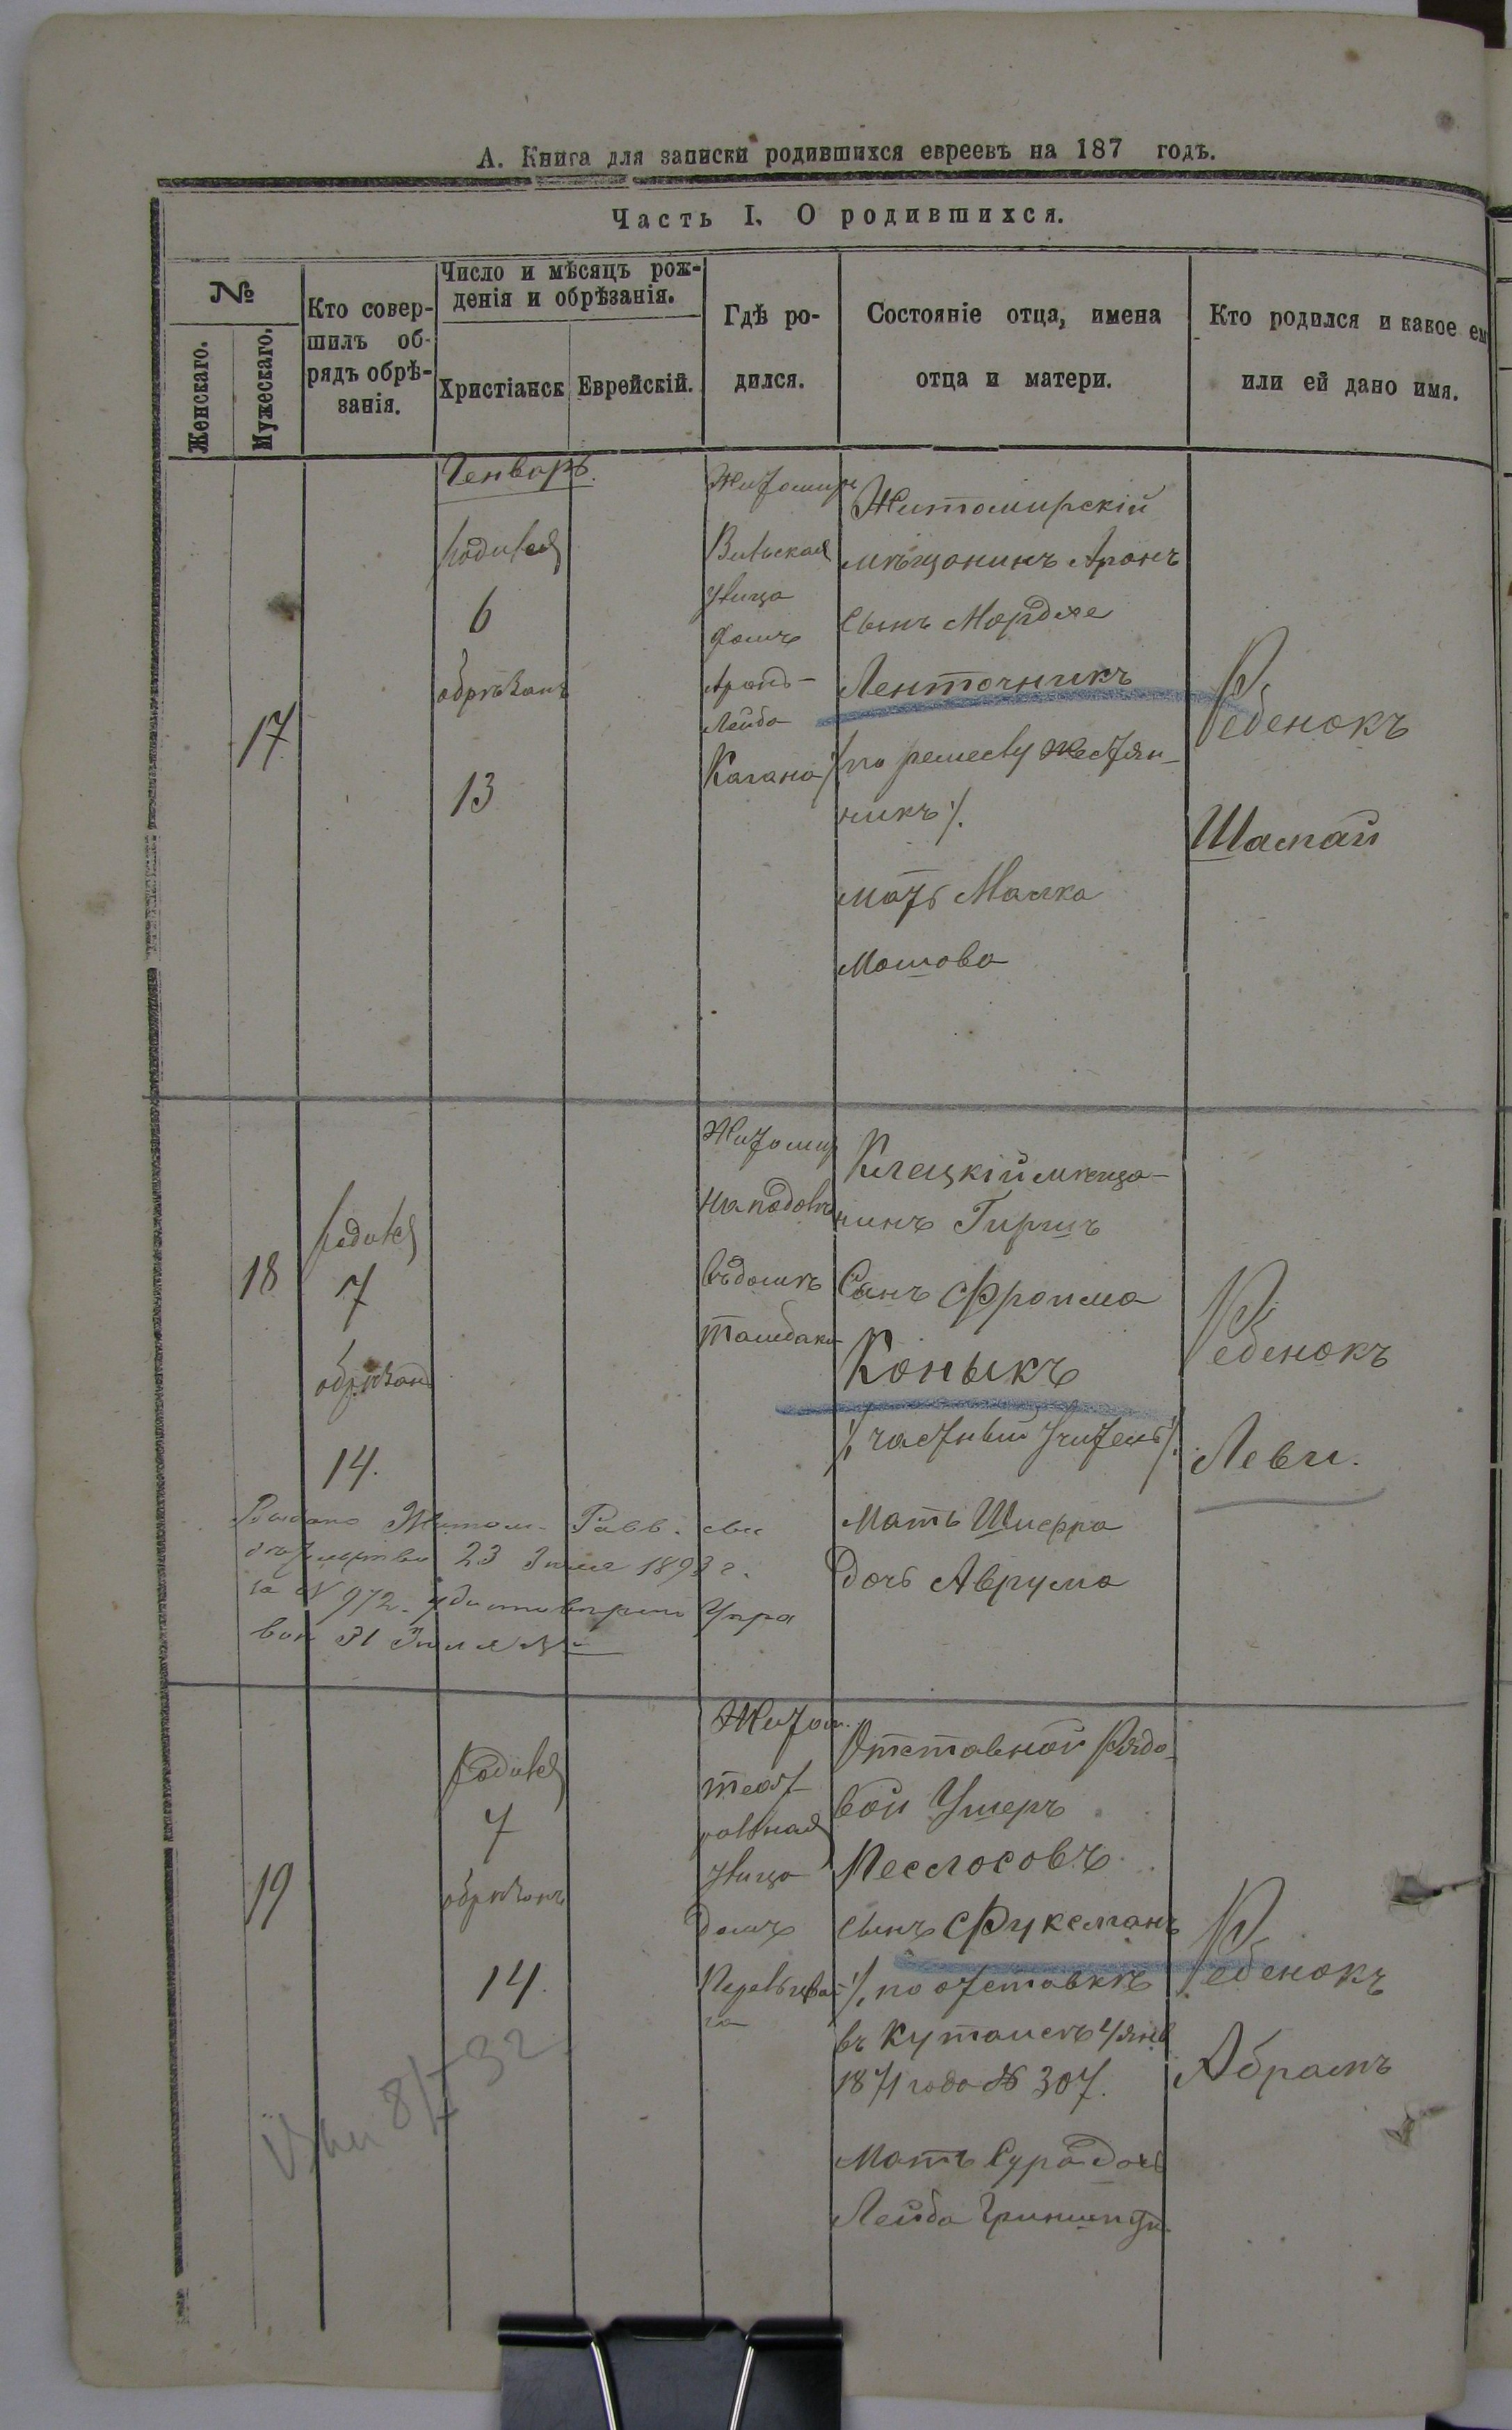 А. Книга для записки родившихся евреевъ на 187 годъ.
Часть I. О родившихся.
№
Женскаго.
Мужескаго.
Кто совер-
шилъ об-
рядъ обрѣ-
занія.
Число и мѣсяцъ рож-
денія и обрѣзанія.
Христіанск
Еврейскій.
Гдѣ ро-
дился.
Состояніе отца, имена
отца и матери.
Кто родился и какое ем
или ей дано имя.
17
Генворь.
родился
6
обрѣзанъ
13
Житомиръ
Вильская
улица
домъ
Аронъ-
Лейба
Кагана
Житомирскій
мѣщанинъ Аронъ
сынъ Мордхе
Ленточникъ
/по ремеслу жестян-
никъ/.
мать Малка
Мошова
Ребенокъ
Шамай
18
родился
7
обрѣзанъ
14.
Житомир
на подолѣ
въ домѣ
Клецкій мѣща-
нинъ Гиршъ
Сынъ Фроима
Копыкъ
/частный учитель/.
Мать Шифра
дочь Аврума
Ребенокъ
Леви.
Выдано Житом. Равв. сви
дѣтельство 23 Іюля 1893 г.
за № 972.
31 Іюля
19
родился
7
обрѣзанъ
14.
Житом.
театральная
улица
домъ
Отставной Рядо-
вой Ушеръ
сынъ Фуксманъ
/по отставкѣ
въ Кутаисѣ 4 янв
1871 года № 307.
Мать Сура дочь
Лейба
Ребенокъ
Абрамъ
8/I 32